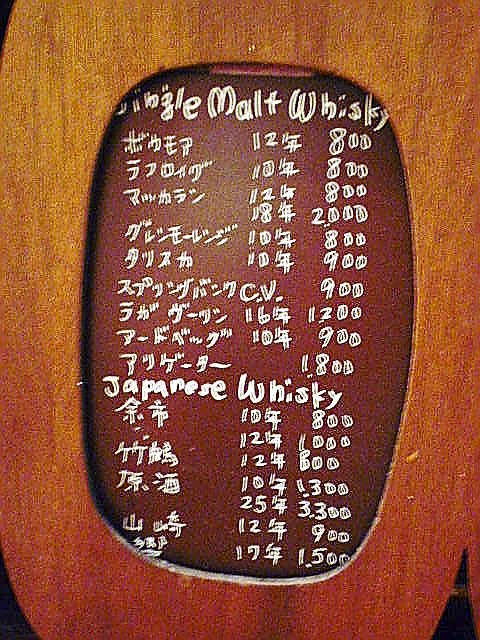 Single Malt Whisky
ボウモア 12年 800
ラフロイグ 10年 800
マッカラン 12年 800
18年 2.000
グレンモーレンジ 10年 800
タリスカ 10年 900
スプリングバンク C.V. 900
ラガヴーリン 16年 1200
アードベッグ 10年 900
アリゲーター 1.800
Japanese Whisky
余市 10年 800
12年 1000
竹鶴 12年 800
原酒 10年 1.300
25年 3.300
山崎 12年 900
17年 1.500